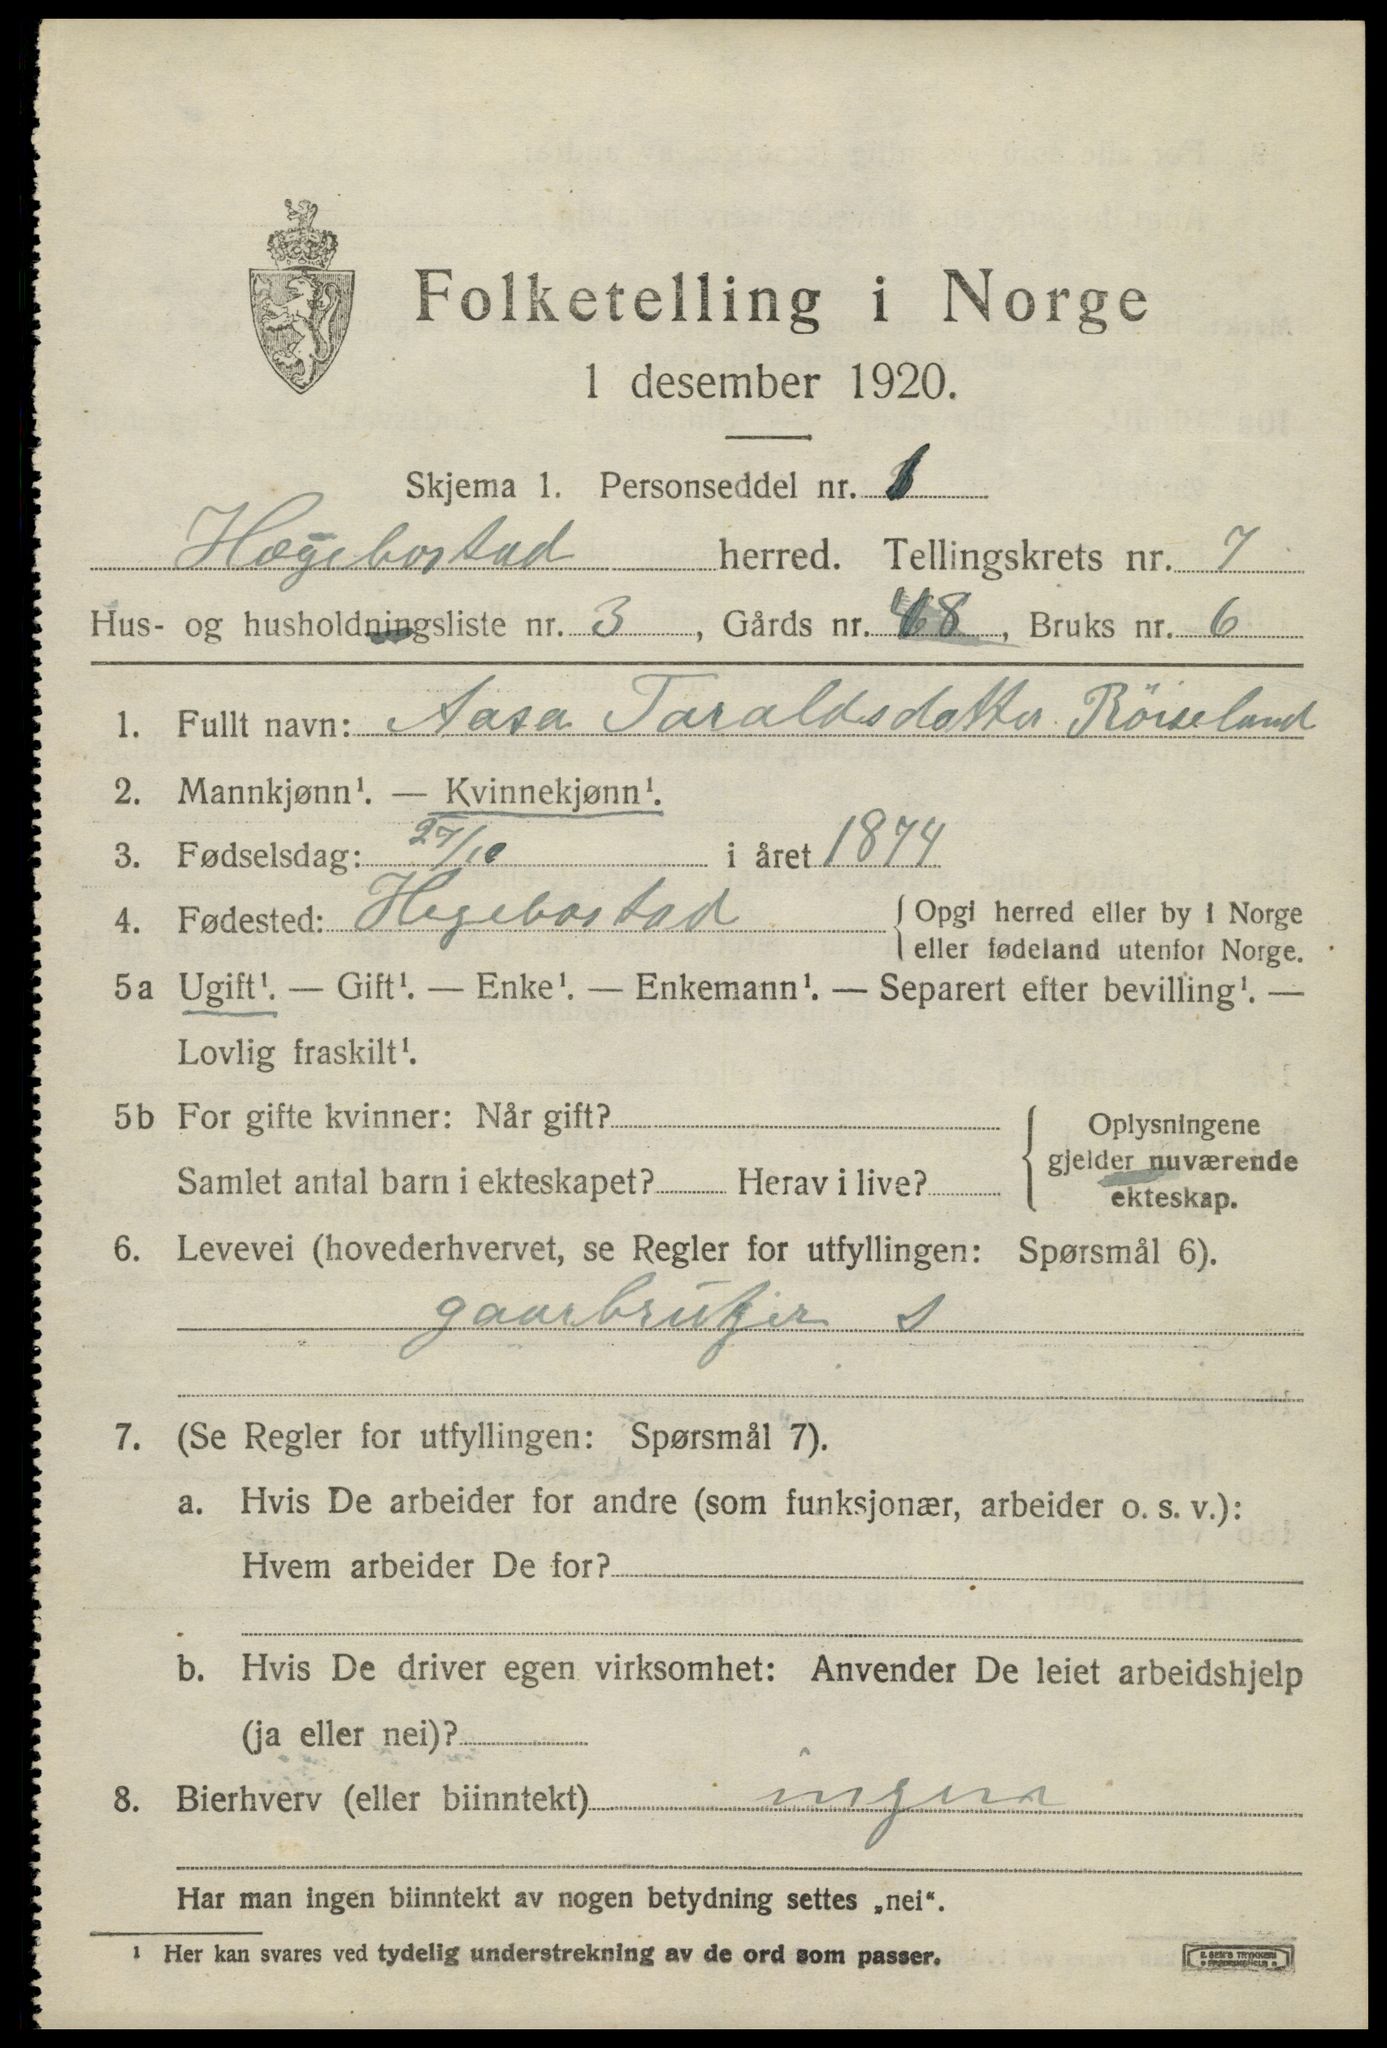 Folketelling i Norge
1 desember 1920.
Skjema 1. Personseddel nr. 1
Hægebostad herred. Tellingskrets nr. 7
Hus- og husholdningsliste nr. 3, Gårds nr. 68, Bruks nr. 6
1. Fullt navn: Aasa Taraldsdatter Röiseland
2. Mannkjønn¹. — Kvinnekjønn¹.
3. Fødselsdag: 27/10 i året 1874
4. Fødested: Hegebostad { Opgi herred eller by i Norge
eller fødeland utenfor Norge.
5a Ugift¹. — Gift¹. — Enke¹. — Enkemann¹. — Separert efter bevilling¹. —
Lovlig fraskilt¹.
5b For gifte kvinner: Når gift? { Oplysningene
gjelder nuværende
Samlet antal barn i ekteskapet? Herav i live?
ekteskap.
6. Levevei (hovederhvervet, se Regler for utfyllingen: Spørsmål 6).
gaarbrukjer s
7. (Se Regler for utfyllingen: Spørsmål 7).
a. Hvis De arbeider for andre (som funksjonær, arbeider o. s. v.):
Hvem arbeider De for?
b. Hvis De driver egen virksomhet: Anvender De leiet arbeidshjelp
(ja eller nei)?
8. Bierhverv (eller biinntekt) ingen
Har man ingen biinntekt av nogen betydning settes „nei“.
¹ Her kan svares ved tydelig understrekning av de ord som passer.